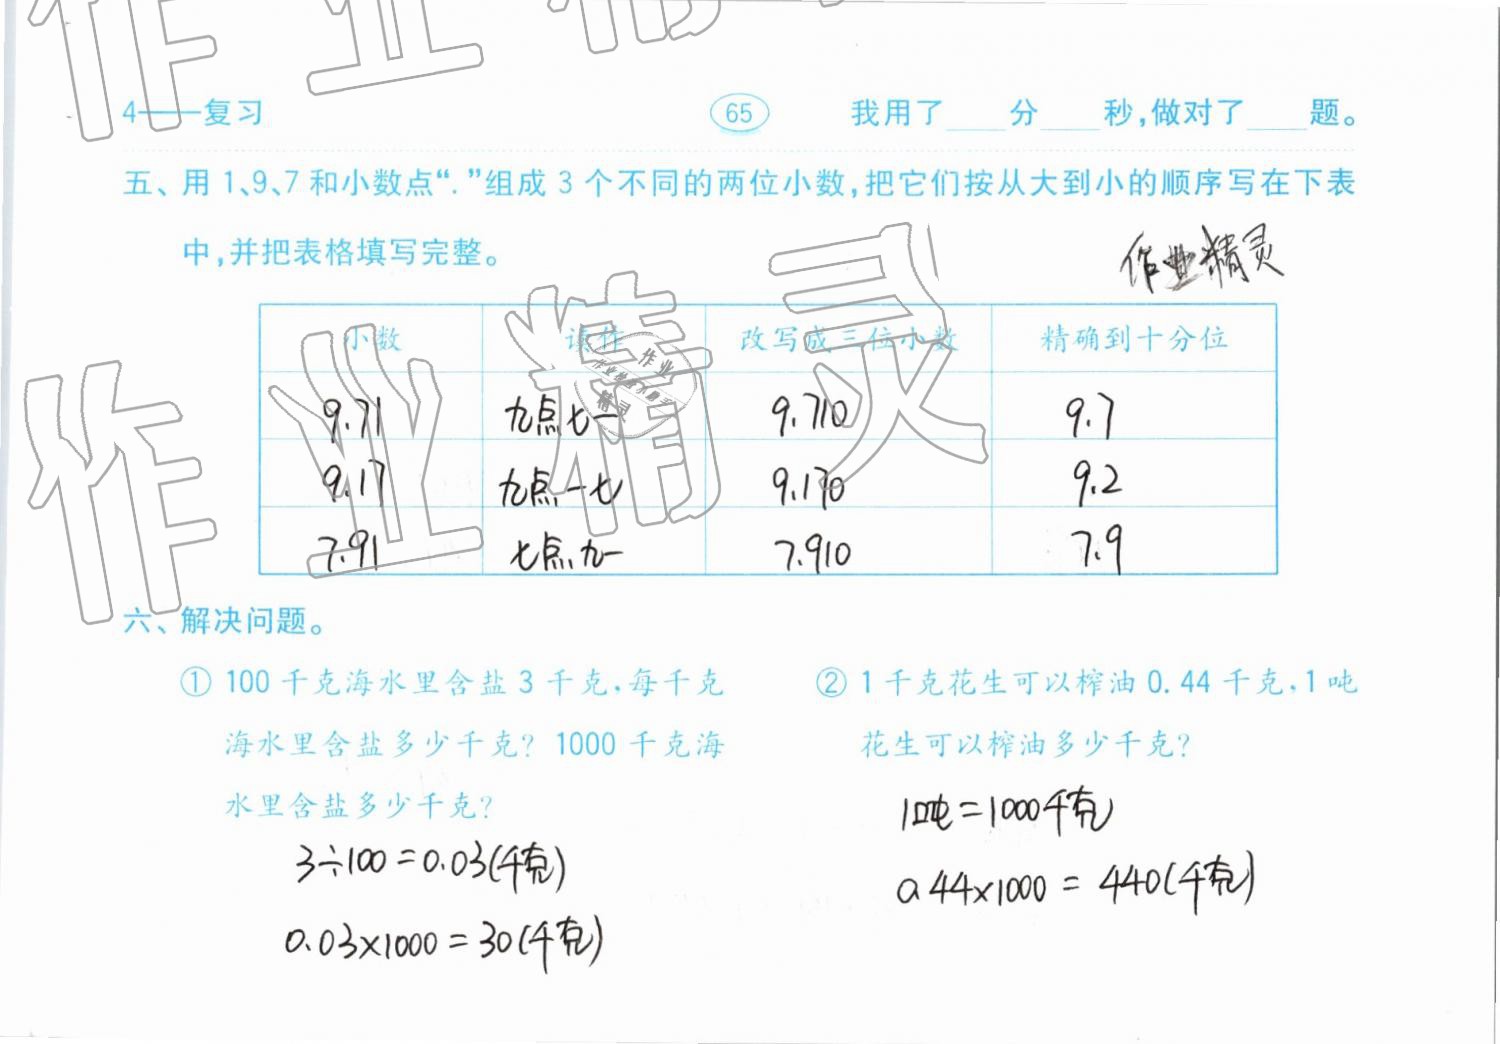 作业精
4——复习 65 我用了____分____秒,做对了____题。
五、用1、9、7和小数点“.”组成3个不同的两位小数,把它们按从大到小的顺序写在下表
中,并把表格填写完整。
作业精灵
小数 读作 改写成三位小数 精确到十分位
9.71 九点七一 9.710 9.7
9.17 九点一七 9.170 9.2
7.91 七点九一 7.910 7.9
作业精灵
作业
精灵
六、解决问题。
① 100千克海水里含盐3千克,每千克
海水里含盐多少千克?1000千克海
水里含盐多少千克?
3÷100=0.03(千克)
0.03×1000=30(千克)
② 1千克花生可以榨油0.44千克,1吨
花生可以榨油多少千克?
1吨=1000千克
0.44×1000=440(千克)